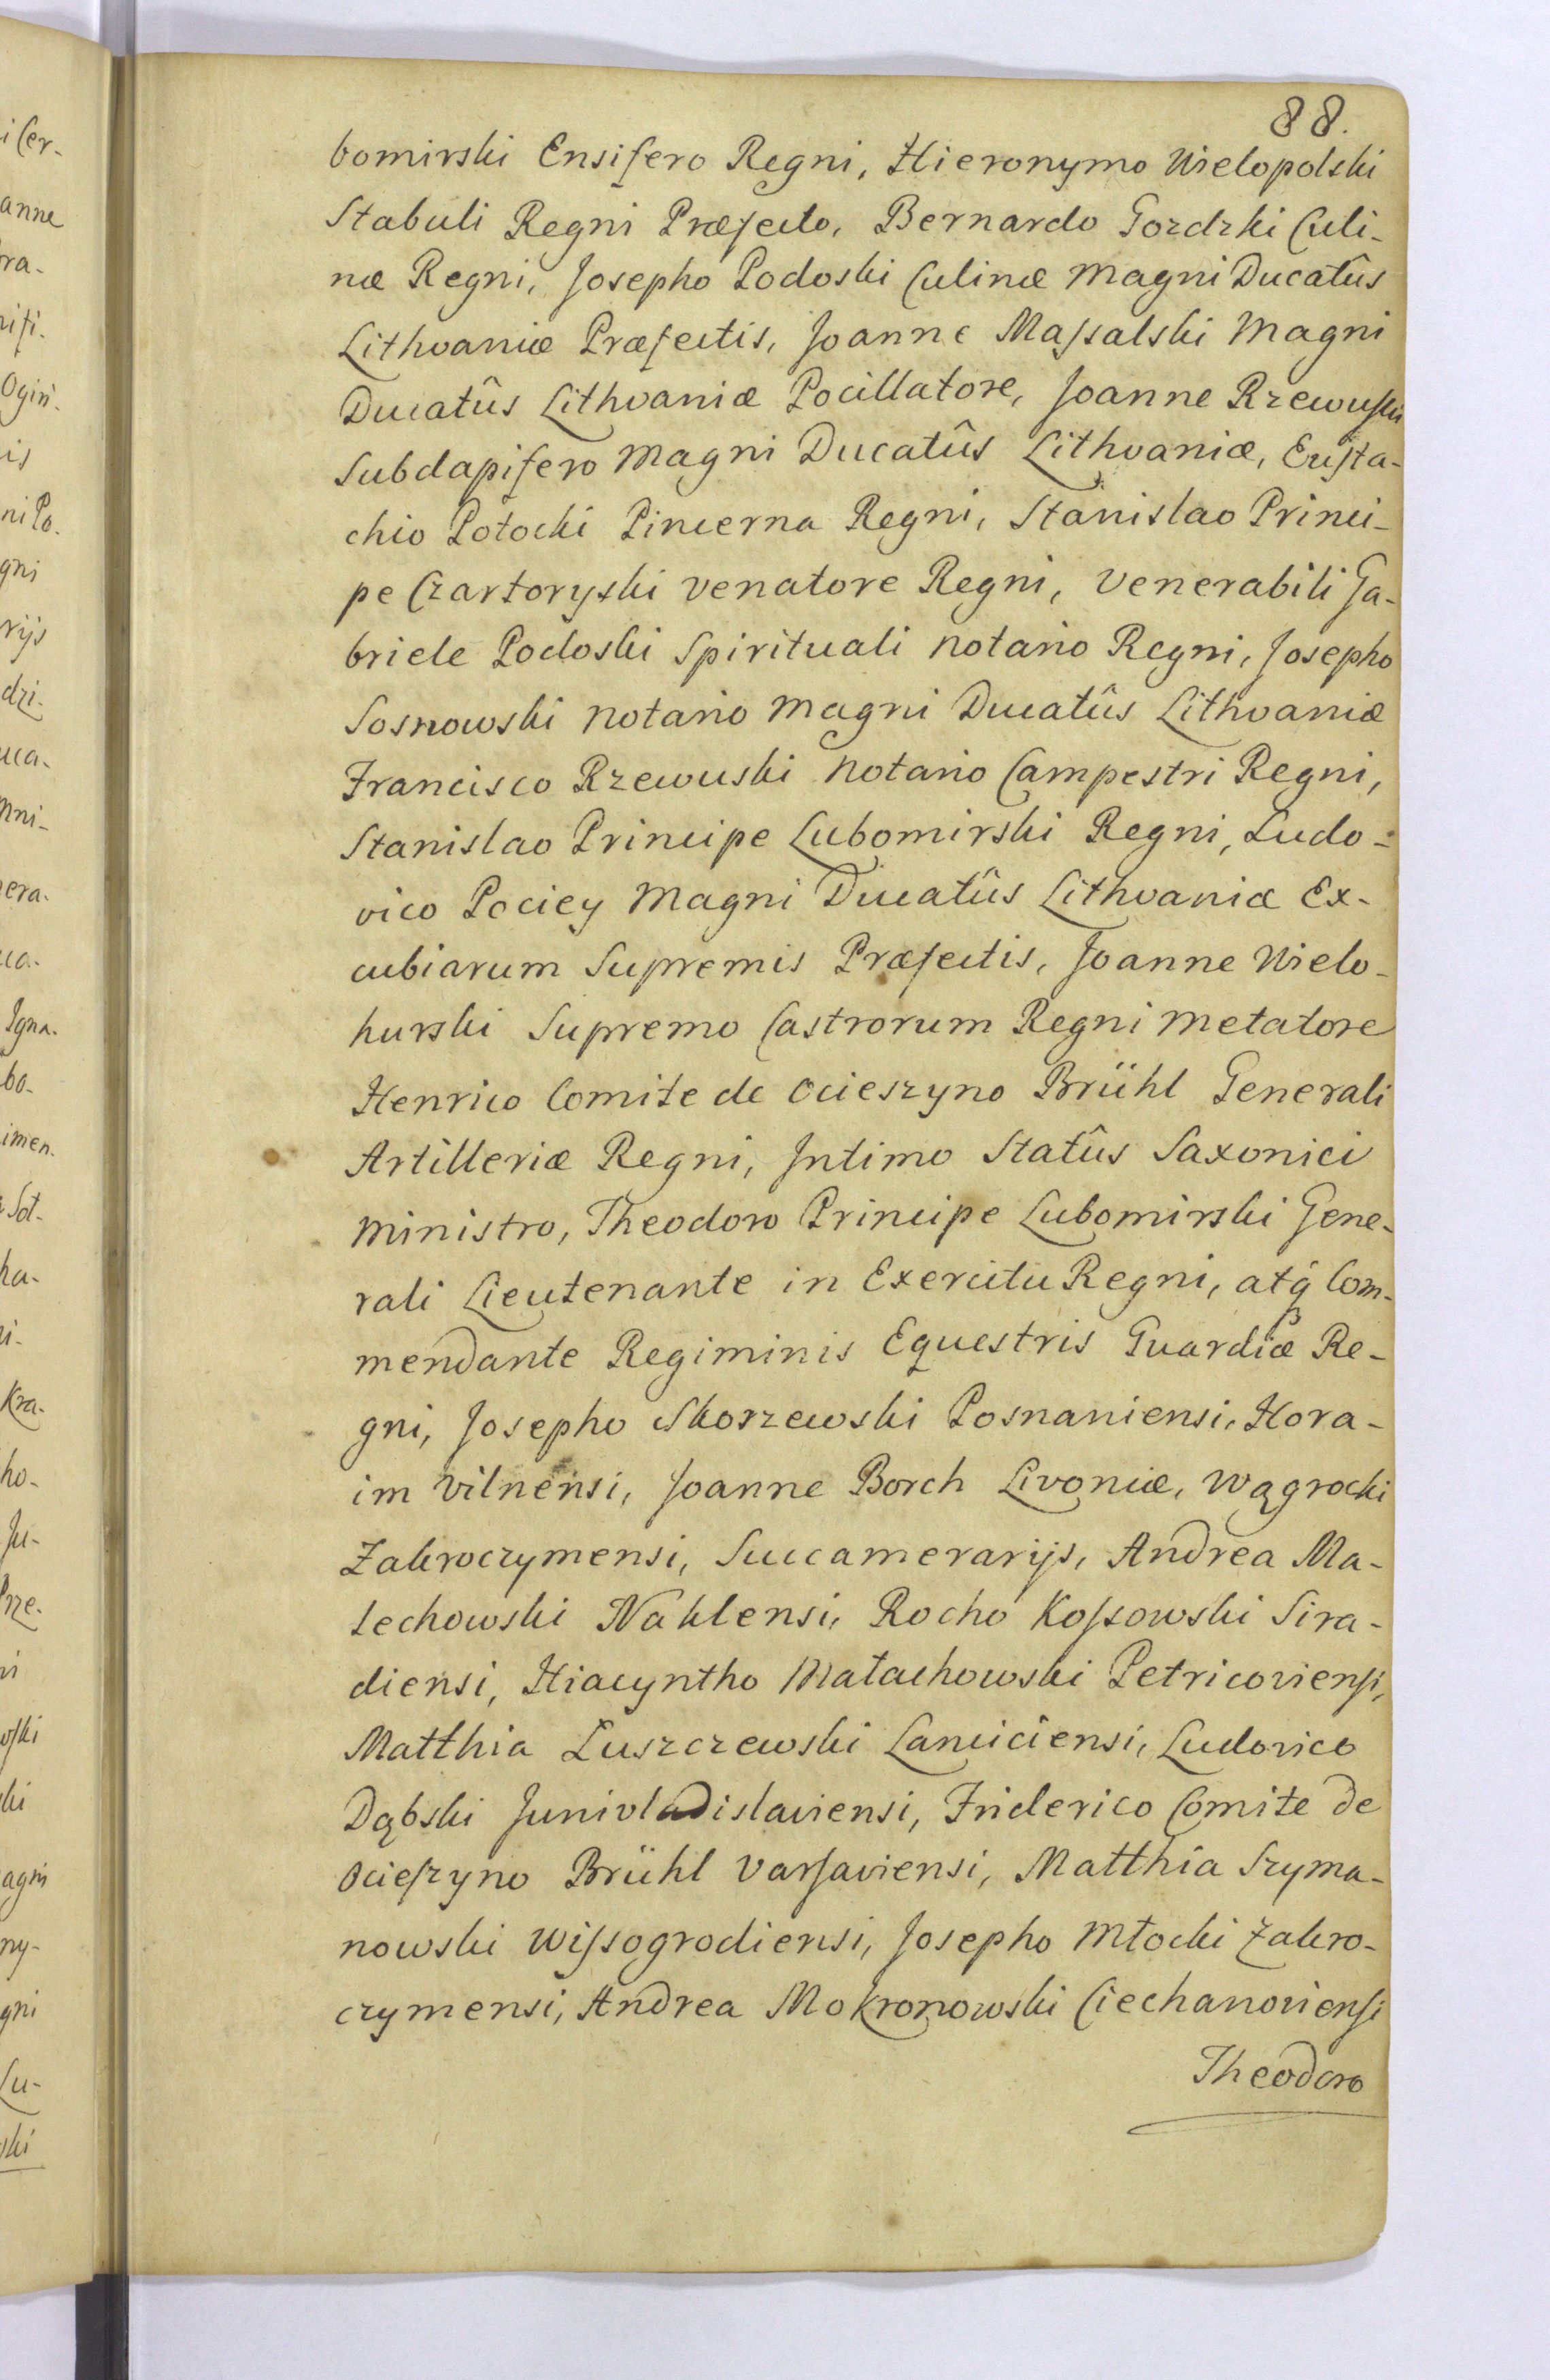 88.
bomirski Ensifero Regni, Hieronymo Wielopolski
Stabuli Regni Præfecto, Bernardo Gozdzki Culi-
næ Regni, Josepho Podoski Culinæ Magni Ducatûs
Lithvaniæ Præfectis, Joanne Massalski Magni
Ducatûs Lithvaniæ Pocillatore, Joanne Rzewuski
Subdapifero Magni Ducatûs Lithvaniæ, Eusta-
chio Potocki Pincerna Regni, Stanislao Princi-
pe Czartoryski Venatore Regni, Venerabili Ga-
briele Podoski Spirituali Notario Regni, Josepho
Sosnowski Notario Magni Ducatûs Lithvaniæ
Francisco Rzewuski Notario Campestri Regni,
Stanislao Principe Lubomirski Regni, Ludo=
vico Pociey Magni Ducatûs Lithvaniæ Ex-
cubiarum Supremis Præfectis, Joanne Wielo-
hurski Supremo Castrorum Regni Metatore
Henrico Comite de Ocieszyno Brühl Generali
Artilleriæ Regni, Intimo Statûs Saxonici
Ministro, Theodoro Principe Lubomirski Gene-
rali Lieutenante in Exercitu Regni, atq Com-
mendante Regiminis Equestris Guardiæ Re-
gni, Josepho Skorzewski Posnaniensi, Hora-
im Vilnensi, Joanne Borch Livoniæ, Wągrocki
Zakroczymensi, Succamerarijs, Andrea Ma-
lechowski Naklensi, Rocho Kossowski Sira-
diensi, Hiacyntho Małachowski Petricoviensi,
Matthia Łuszczewski Lanciciensi, Ludovico
Dąbski Junivladislaviensi, Friderico Comite de
Ocieszyno Brühl Varsaviensi, Matthia Szyma-
nowski Wissogrodiensi, Josepho Młocki Zakro-
czymensi, Andrea Mokronowski Ciechanoviensi
Theodoro
i Cer-
anne
ra-
Ogiń-
is
ni Po-
gni
rijs
dzi-
uca-
nni-
era-
Igna-
bo-
imen-
Sot-
ha-
i-
Kra-
ho-
Ju-
Prze-
ski
ki
agni
ny-
gni
Lu-
ski